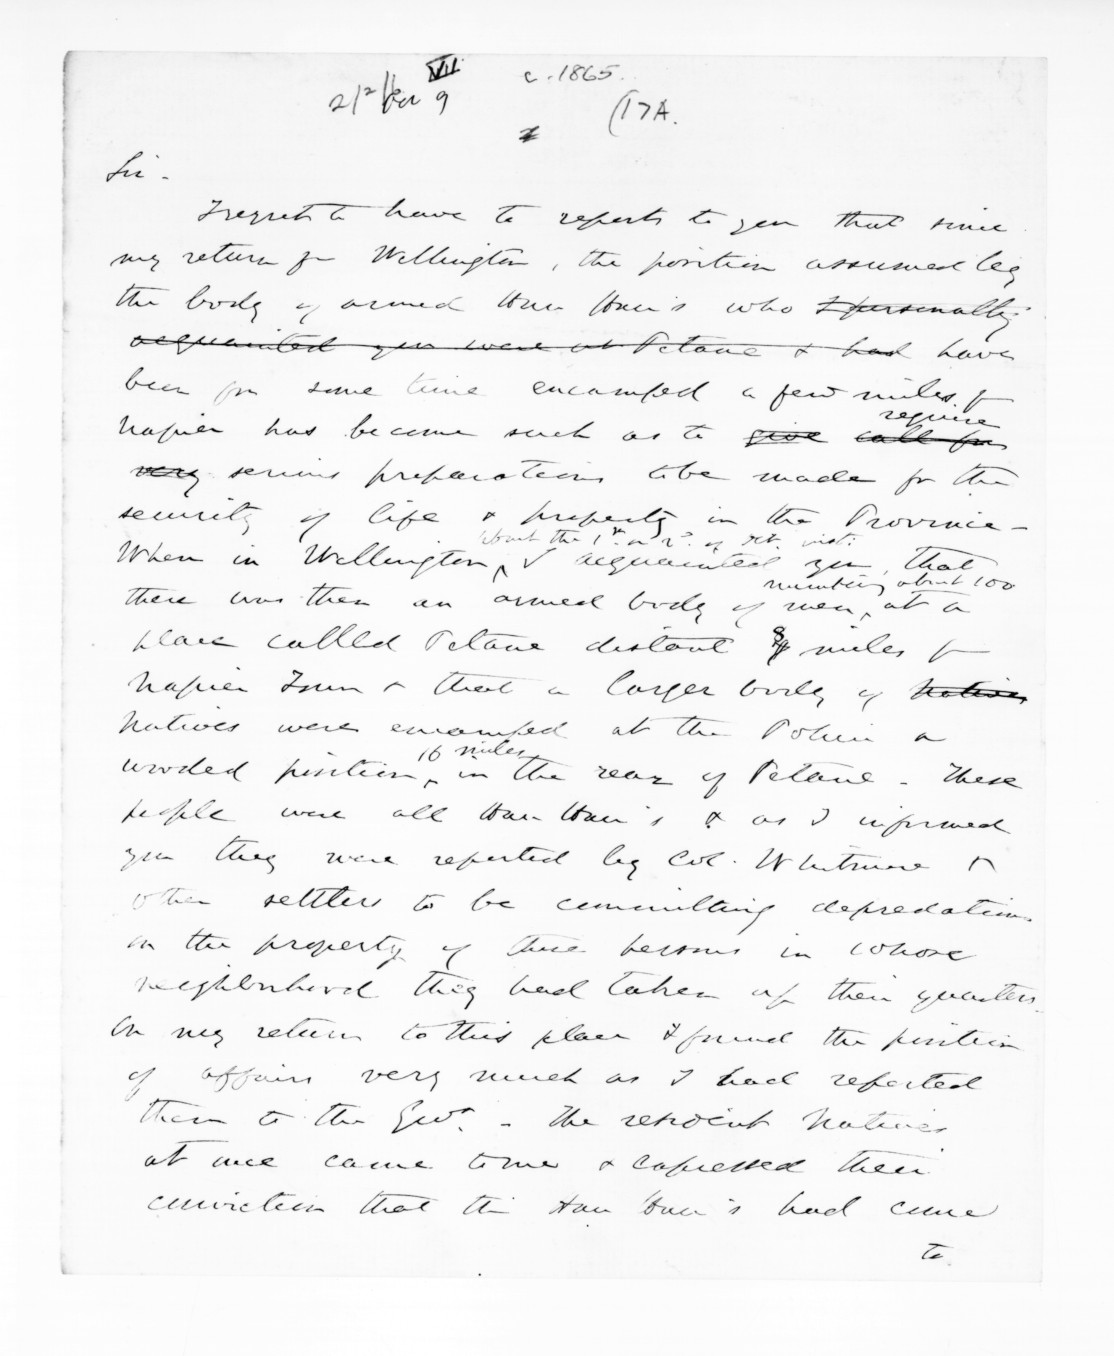 VII
c. 1865.
(17A.
Sir -
I regret to have to report to you that since
my return fm Wellington, the position assumed by
the body of armed Hau Hau's who I personally
acquainted you were at Petane & had have
been for some time encamped a few miles fm
require
Napier has become such as to give call for
very serious preparations to be made for the
security of life & property in the Province -
about the 1st or 2d of inst:
When in Wellington, I acquainted you, that
numbering about 100
there was then an armed body of men, at a
place called Petane distant 8 miles fm
Napier Town & that a larger body of Natives
Natives were encamped at the Pohui a
16 miles
wooded position, in the rear of Petane - These
people were all Hau Hau's & as I informed
you they were reported by Col. Whitmore &
other settlers to be committing depredations
on the property of those persons in whose
neighborhood they had taken up their quarters.
On my return to this place I found the position
of affairs very much as I had reported
them to the Govt. - The resident Natives
at once came to me & expressed their
conviction that the Hau Hau's had come
to